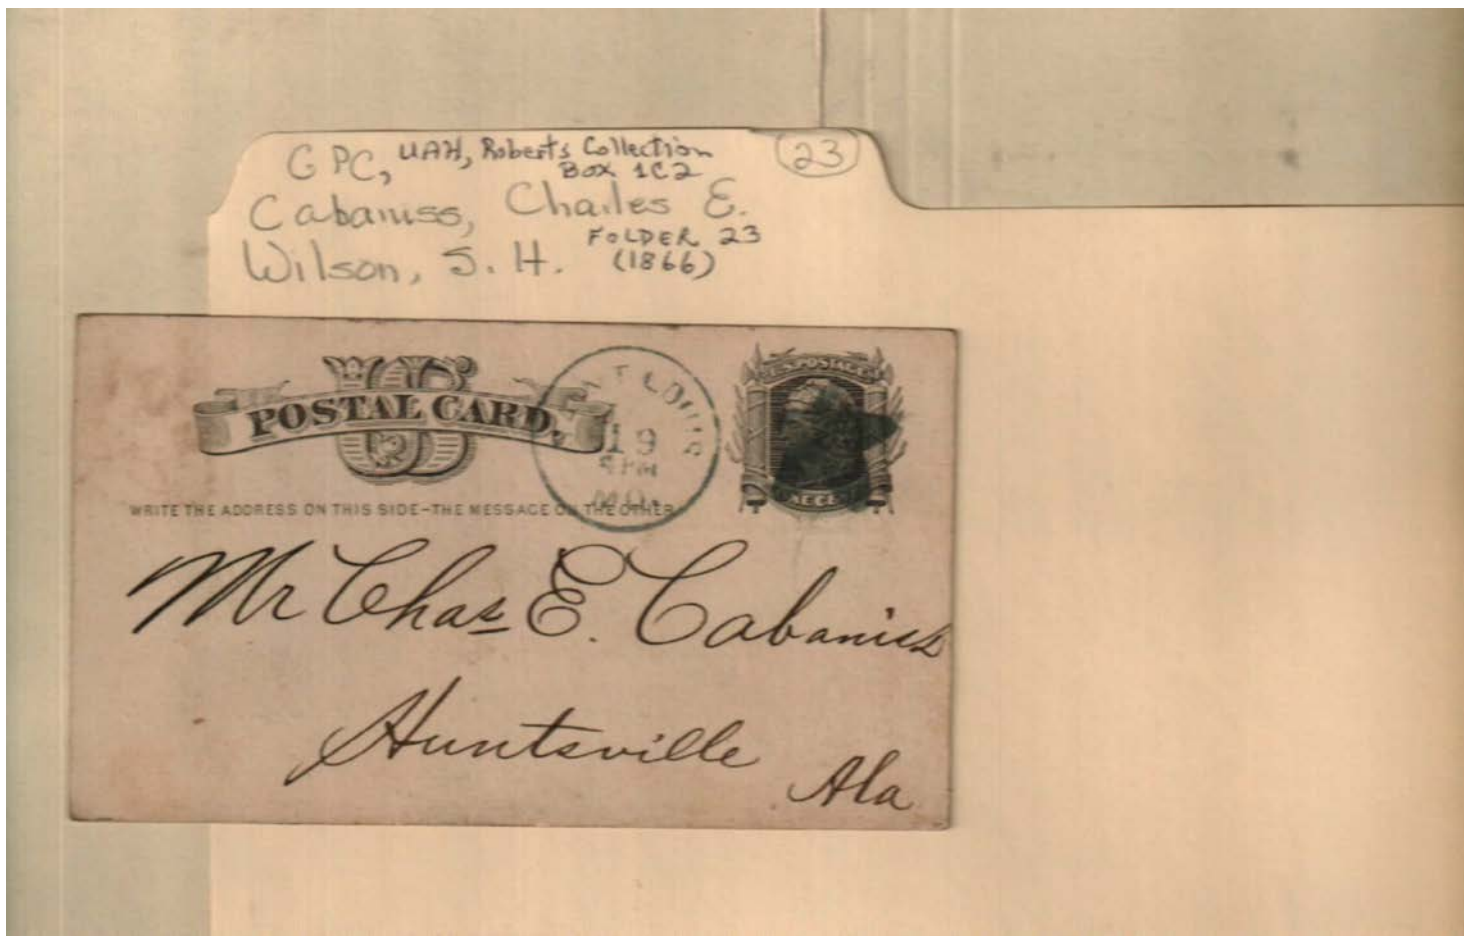 GPC, UAH, Roberts Collection
Box 1C2
23
Cabaniss, Charles E.
FOLDER 23
Wilson, S. H. (1866)
US
POSTAL CARD.
LOUIS
19
MO.
U.S. POSTAGE
ONE CENT
WRITE THE ADDRESS ON THIS SIDE-THE MESSAGE ON THE OTHER
Mr Chas E. Cabaniss
Huntsville
Ala